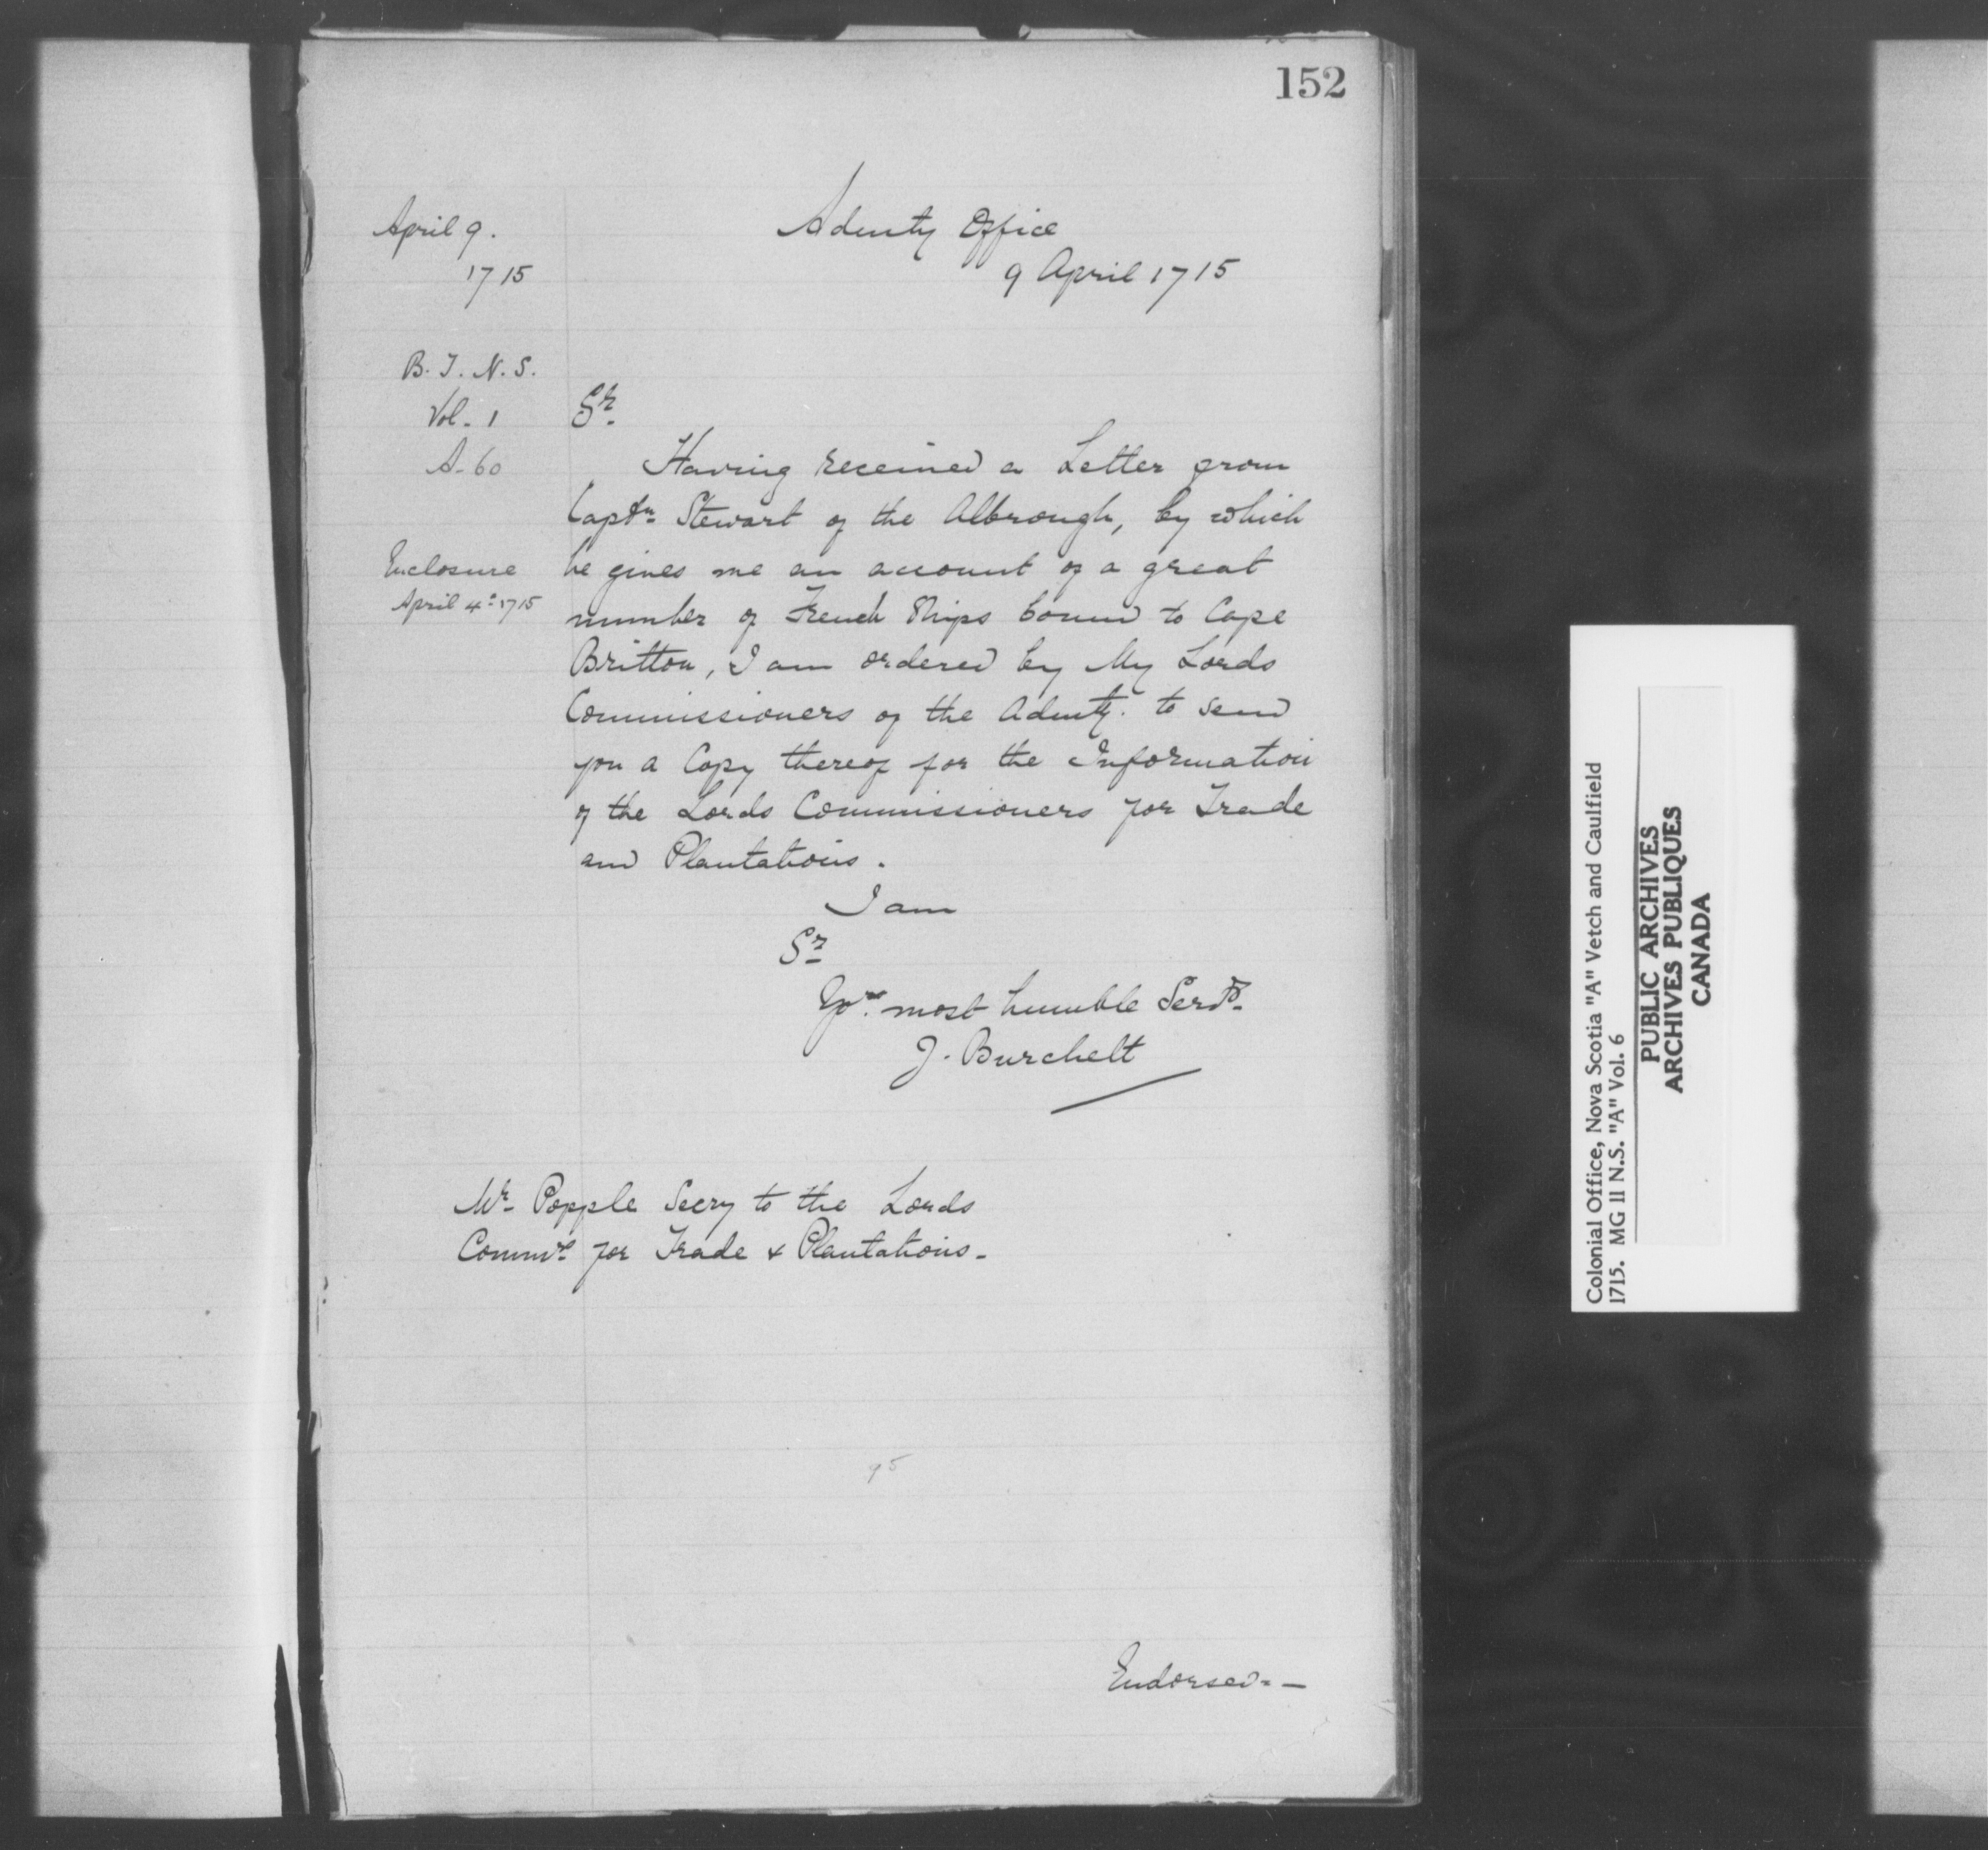 152
April 9.
1715
Admty Office
9 April 1715
B. T. N. S.
Vol. 1
A-60
Sr.
Having received a Letter from
Captn Stewart of the Albrough, by which
Enclosure
April 4th 1715
he gives me an account of a great
number of French Ships bound to Cape
Britton, I am ordered by My Lords
Commissioners of the Admty. to send
you a Copy thereof for the Information
of the Lords Commissioners for Trade
and Plantations.
I am
Sr
Yor. most humble Servt.
J. Burchett
Mr Popple Secry to the Lords
Commrs for Trade & Plantations-
95
Endorsed. -
Colonial Office, Nova Scotia "A" Vetch and Caulfield
1715. MG 11 N.S. "A" Vol. 6
PUBLIC ARCHIVES
ARCHIVES PUBLIQUES
CANADA